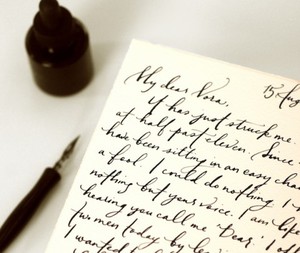 15 Aug
My dear Nora,
It has just struck me.
at half past eleven. Since
have been sitting in an easy cha
a fool. I could do nothing. I
nothing but your voice. I am like
hearing you call me 'Dear.' I of
two men today by le
I wanted